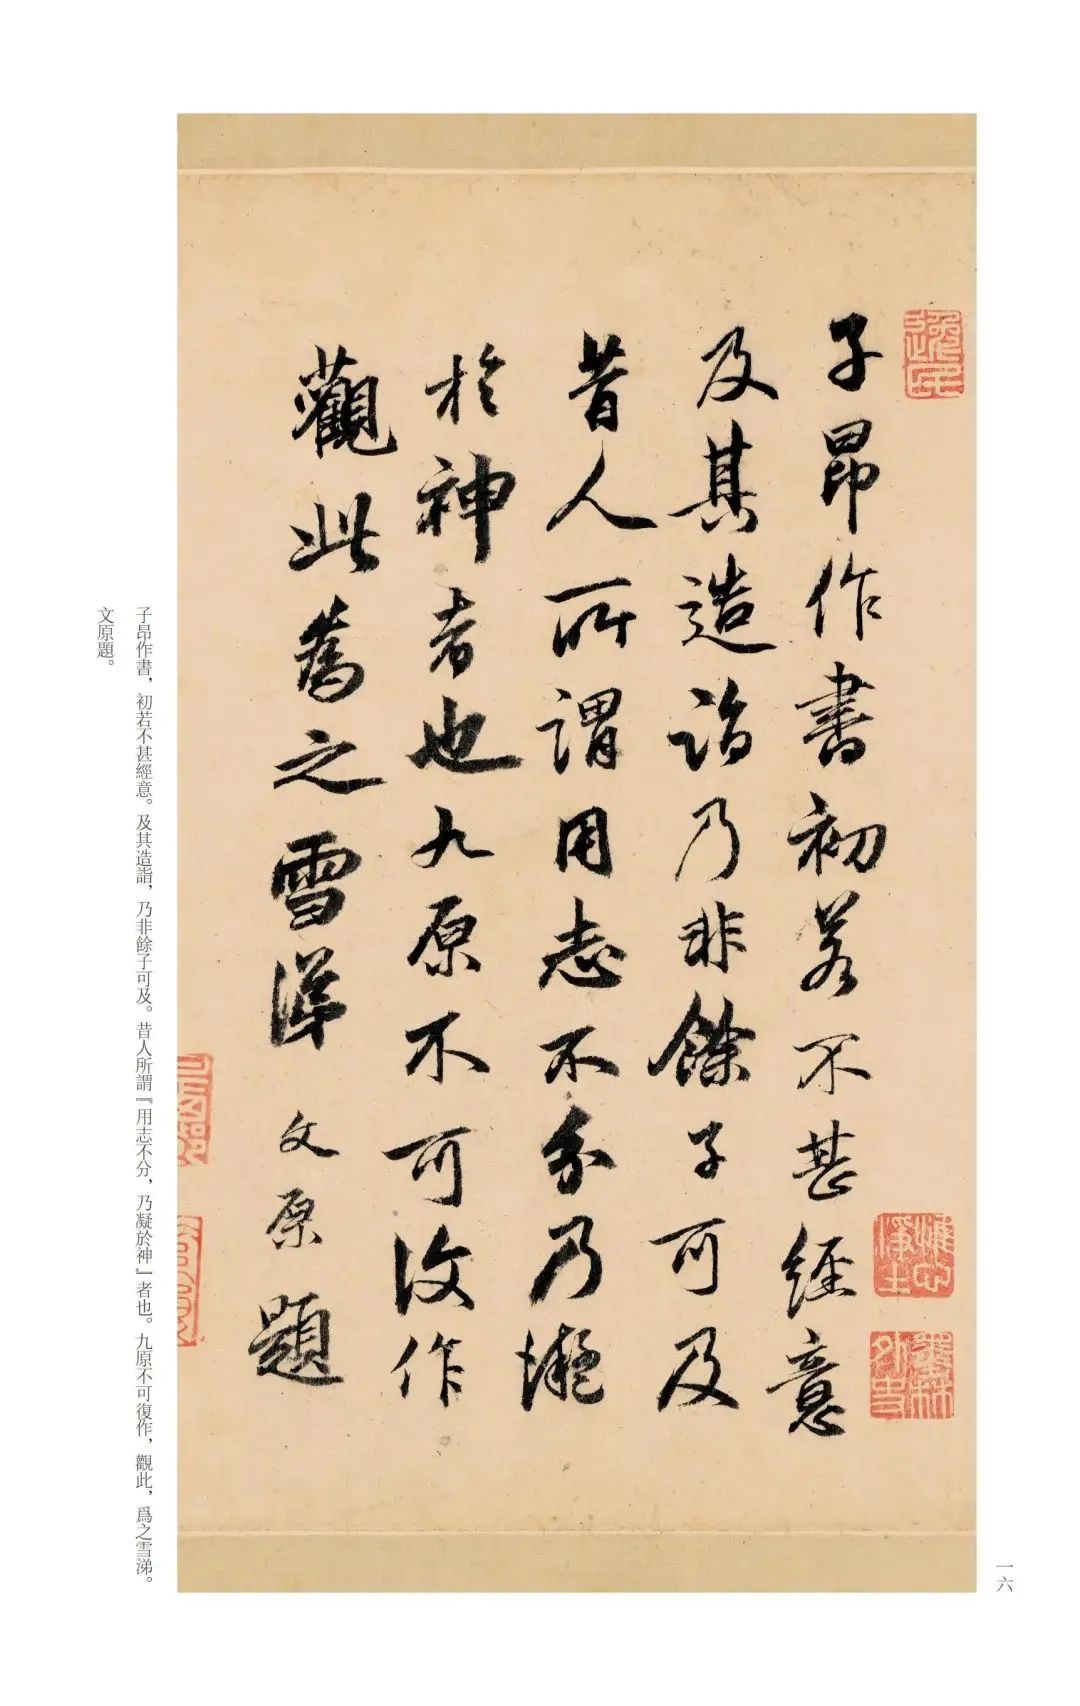 子昂作書初若不甚經意
及其造詣乃非餘子可及
昔人所謂用志不分乃凝
於神者也九原不可復作
觀此為之雪涕文原題
逸民
叢林外史
子昂作書，初若不甚經意。及其造詣，乃非餘子可及。昔人所謂『用志不分，乃凝於神』者也。九原不可復作，觀此，爲之雪涕。
文原題。
一六